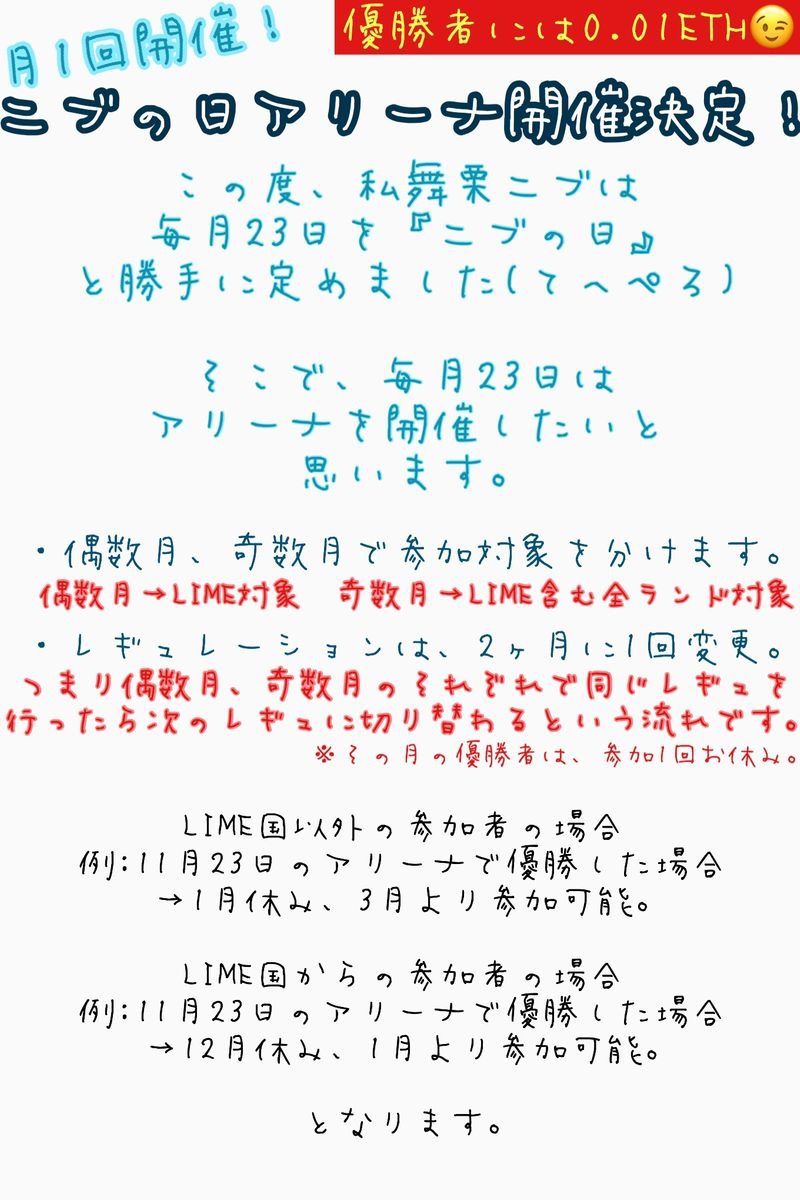 月1回開催!
優勝者には0.01ETH😉
ニブの日アリーナ開催決定!
この度、私舞栗ニブは
毎月23日を『ニブの日』
と勝手に定めました(てへぺろ)
そこで、毎月23日は
アリーナを開催したいと
思います。
・偶数月、奇数月で参加対象を分けます。
偶数月→LIME対象 奇数月→LIME含む全ランド対象
・レギュレーションは、2ヶ月に1回変更。
つまり偶数月、奇数月のそれぞれで同じレギュを
行ったら次のレギュに切り替わるという流れです。
※その月の優勝者は、参加1回お休み。
LIME国以外の参加者の場合
例:11月23日のアリーナで優勝した場合
→1月休み、3月より参加可能。
LIME国からの参加者の場合
例:11月23日のアリーナで優勝した場合
→12月休み、1月より参加可能。
となります。